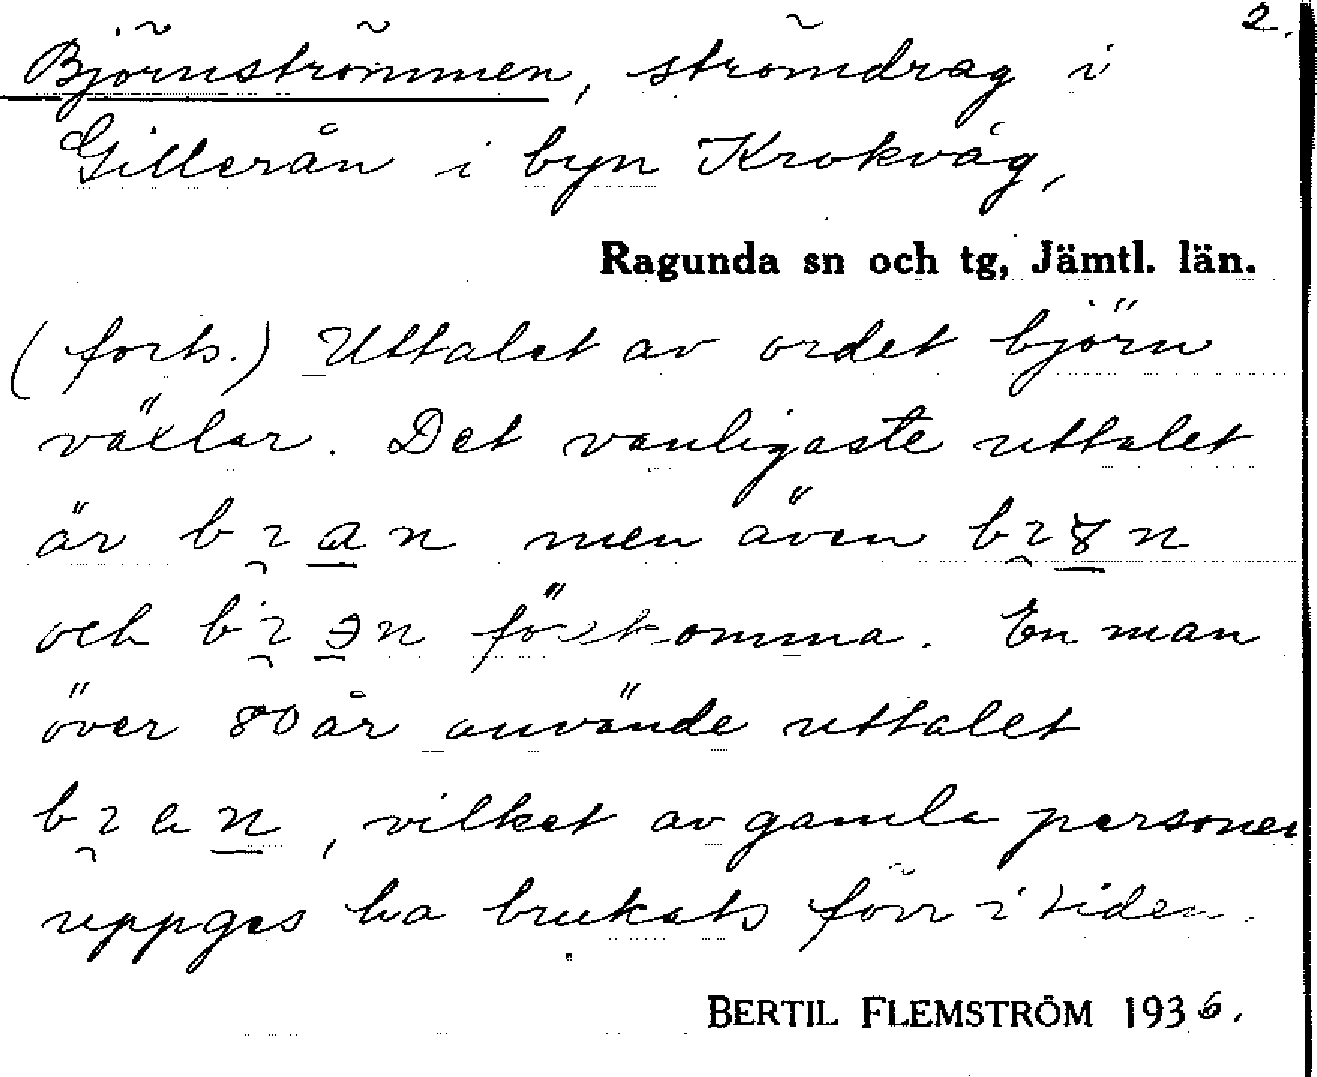 2.
Björnströmmen, strömdrag i
Gillerån i byn Krokvåg,
Ragunda sn och tg, Jämtl. län.
(forts.) Uttalet av ordet björn
växlar. Det vanligaste uttalet
är bɿ̯a̲n men även bɿ̯ɤ̲n
och bɿ̯ɘ̲n förekomma. En man
över 80 år använde uttalet
bɿ̯an̲, vilket av gamla personer
uppges ha brukats förr i tiden.
BERTIL FLEMSTRÖM 1936.